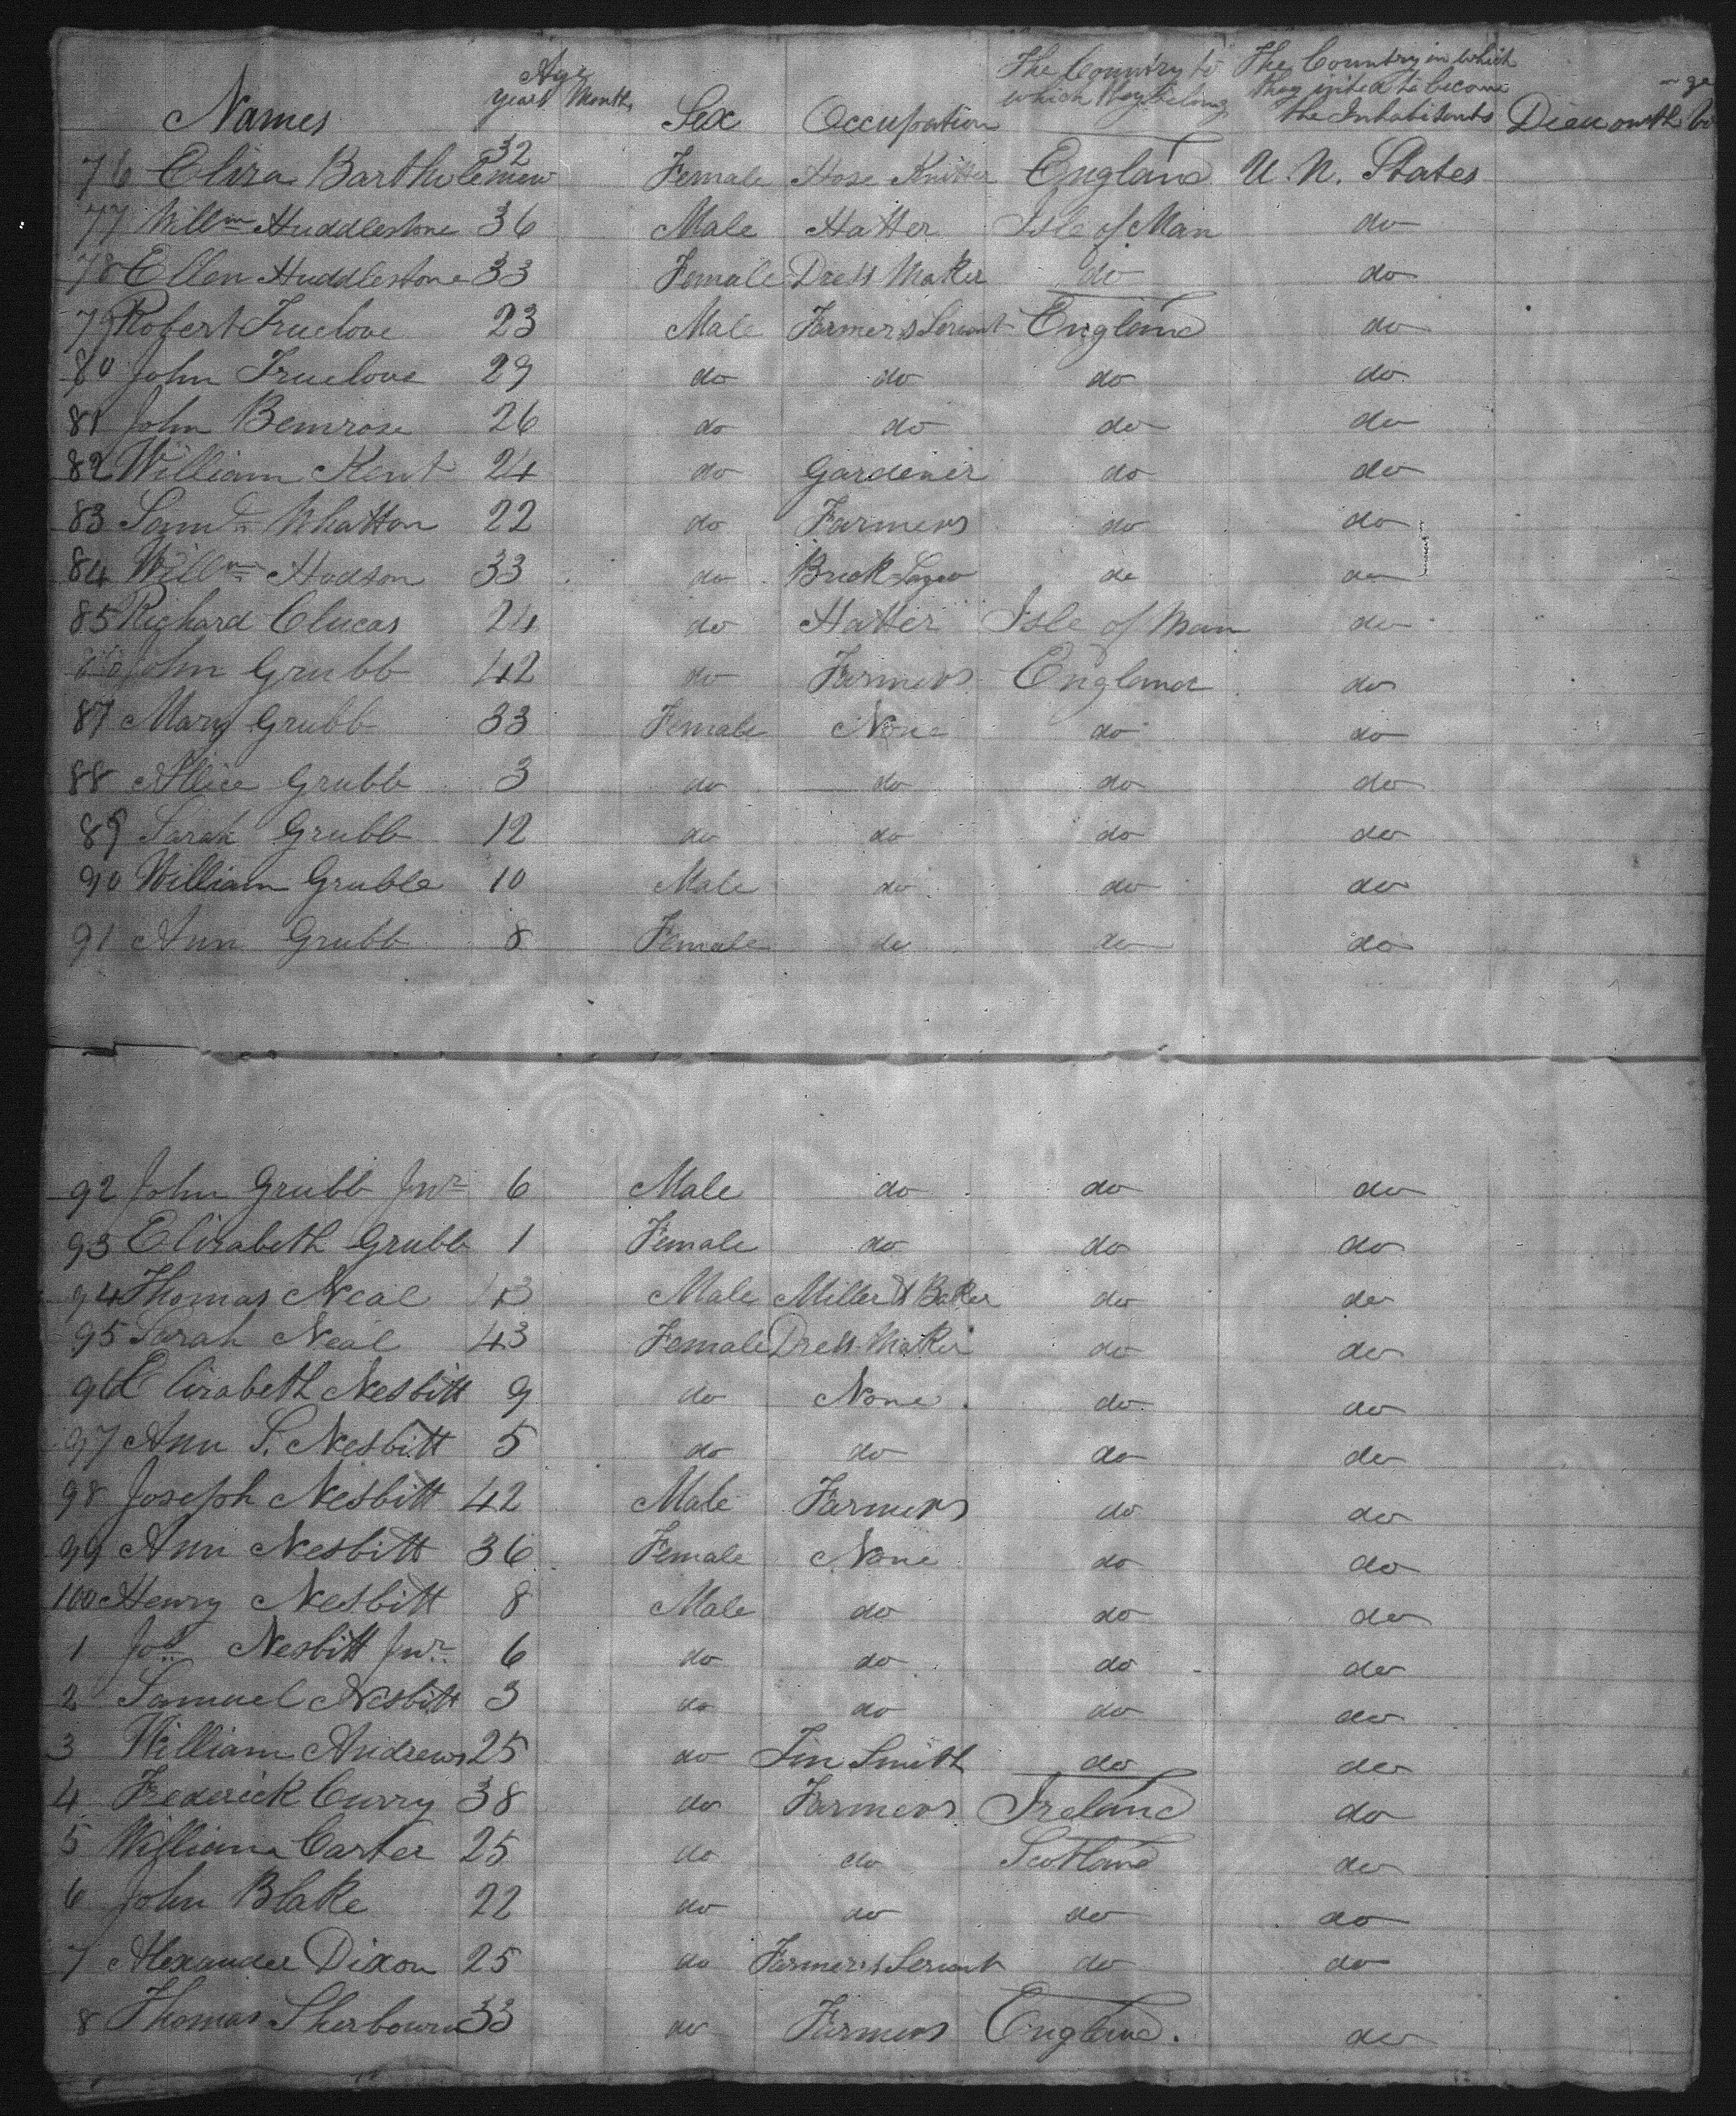 Names Age years Months Sex Occupation The Country to which they belong The Country in which they intend to become the Inhabitants Died on the
76 Eliza Bartholemew 32 Female Hose Knitter England U. N. States
77 Willm Huddlestone 36 Male Hatter Isle of Man do
78 Ellen Huddlestone 33 Female Dress Maker do do
79 Robert Truelove 23 Male Farmers Servant England do
80 John Truelove 29 do do do do
81 John Bemrose 26 do do do do
82 William Kent 24 do Gardener do do
83 Saml Whatton 22 do Farmers do do
84 Willm Hodson 33 do Brick Layer do do
85 Richard Clucas 24 do Hatter Isle of Man do
86 John Grubb 42 do Farmers England do
87 Mary Grubb 33 Female None do do
88 Allice Grubb 3 do do do do
89 Sarah Grubb 12 do do do do
90 William Grubb 10 Male do do do
91 Ann Grubb 8 Female do do do
92 John Grubb Jnr 6 Male do do do
93 Elizabeth Grubb 1 Female do do do
94 Thomas Neal 43 Male Miller & Baker do do
95 Sarah Neal 43 Female Dress Maker do do
96 Elizabeth Nesbitt 9 do None do do
97 Ann S. Nesbitt 5 do do do do
98 Joseph Nesbitt 42 Male Farmers do do
99 Ann Nesbitt 36 Female None do do
100 Henry Nesbitt 8 Male do do do
1 Jos Nesbitt Jnr 6 do do do do
2 Samuel Nesbitt 3 do do do do
3 William Andrews 25 do Tin Smith do do
4 Frederick Curry 38 do Farmers Ireland do
5 William Carter 25 do do Scotland do
6 John Blake 22 do do do do
7 Alexander Dixon 25 do Farmers Servant do do
8 Thomas Sherbourn 33 do Farmers England. do